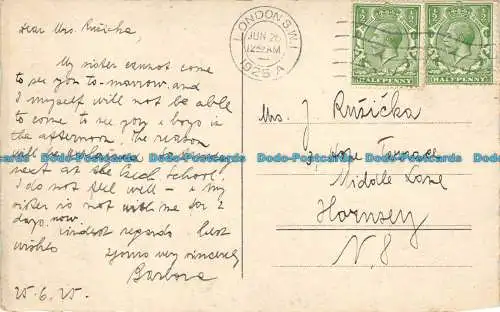 Dear Mrs. Ružička,
My sister cannot come
to see you to-morrow and
I myself will not be able
to come to see you & boys in
the afternoon. The reason
will be
next at the Czech School!
I do not feel well – & my
sister is not with me for 2
days now.
kindest regards. best
wishes
Yours very sincerely
Barbora
25.6.25.
LONDON.S.W.1
JUN 26
12 AM
1925 A
HALFPENNY
HALFPENNY
Mrs. J Ružička
Terrace
Middle Lane
Hornsey
N. 8
Dodo-Postcards Dodo-Postcards Dodo-Postcards Dodo-Postcards